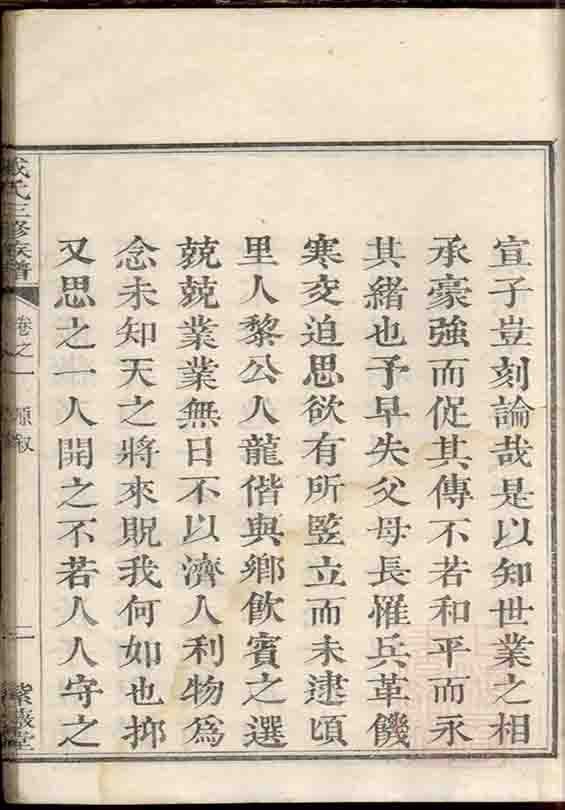 宣子豈刻論哉是以知世業之相
承豪強而促其傳不若和平而永
其緒也予早失父母長罹兵革饑
寒交迫思欲有所竪立而未逮頃
里人黎公人龍偕與鄉飲賓之選
兢兢業業無日不以濟人利物為
念未知天之將來貺我何如也抑
又思之一人開之不若人人守之
戴氏三修族譜
卷之一
源敘
二
堂